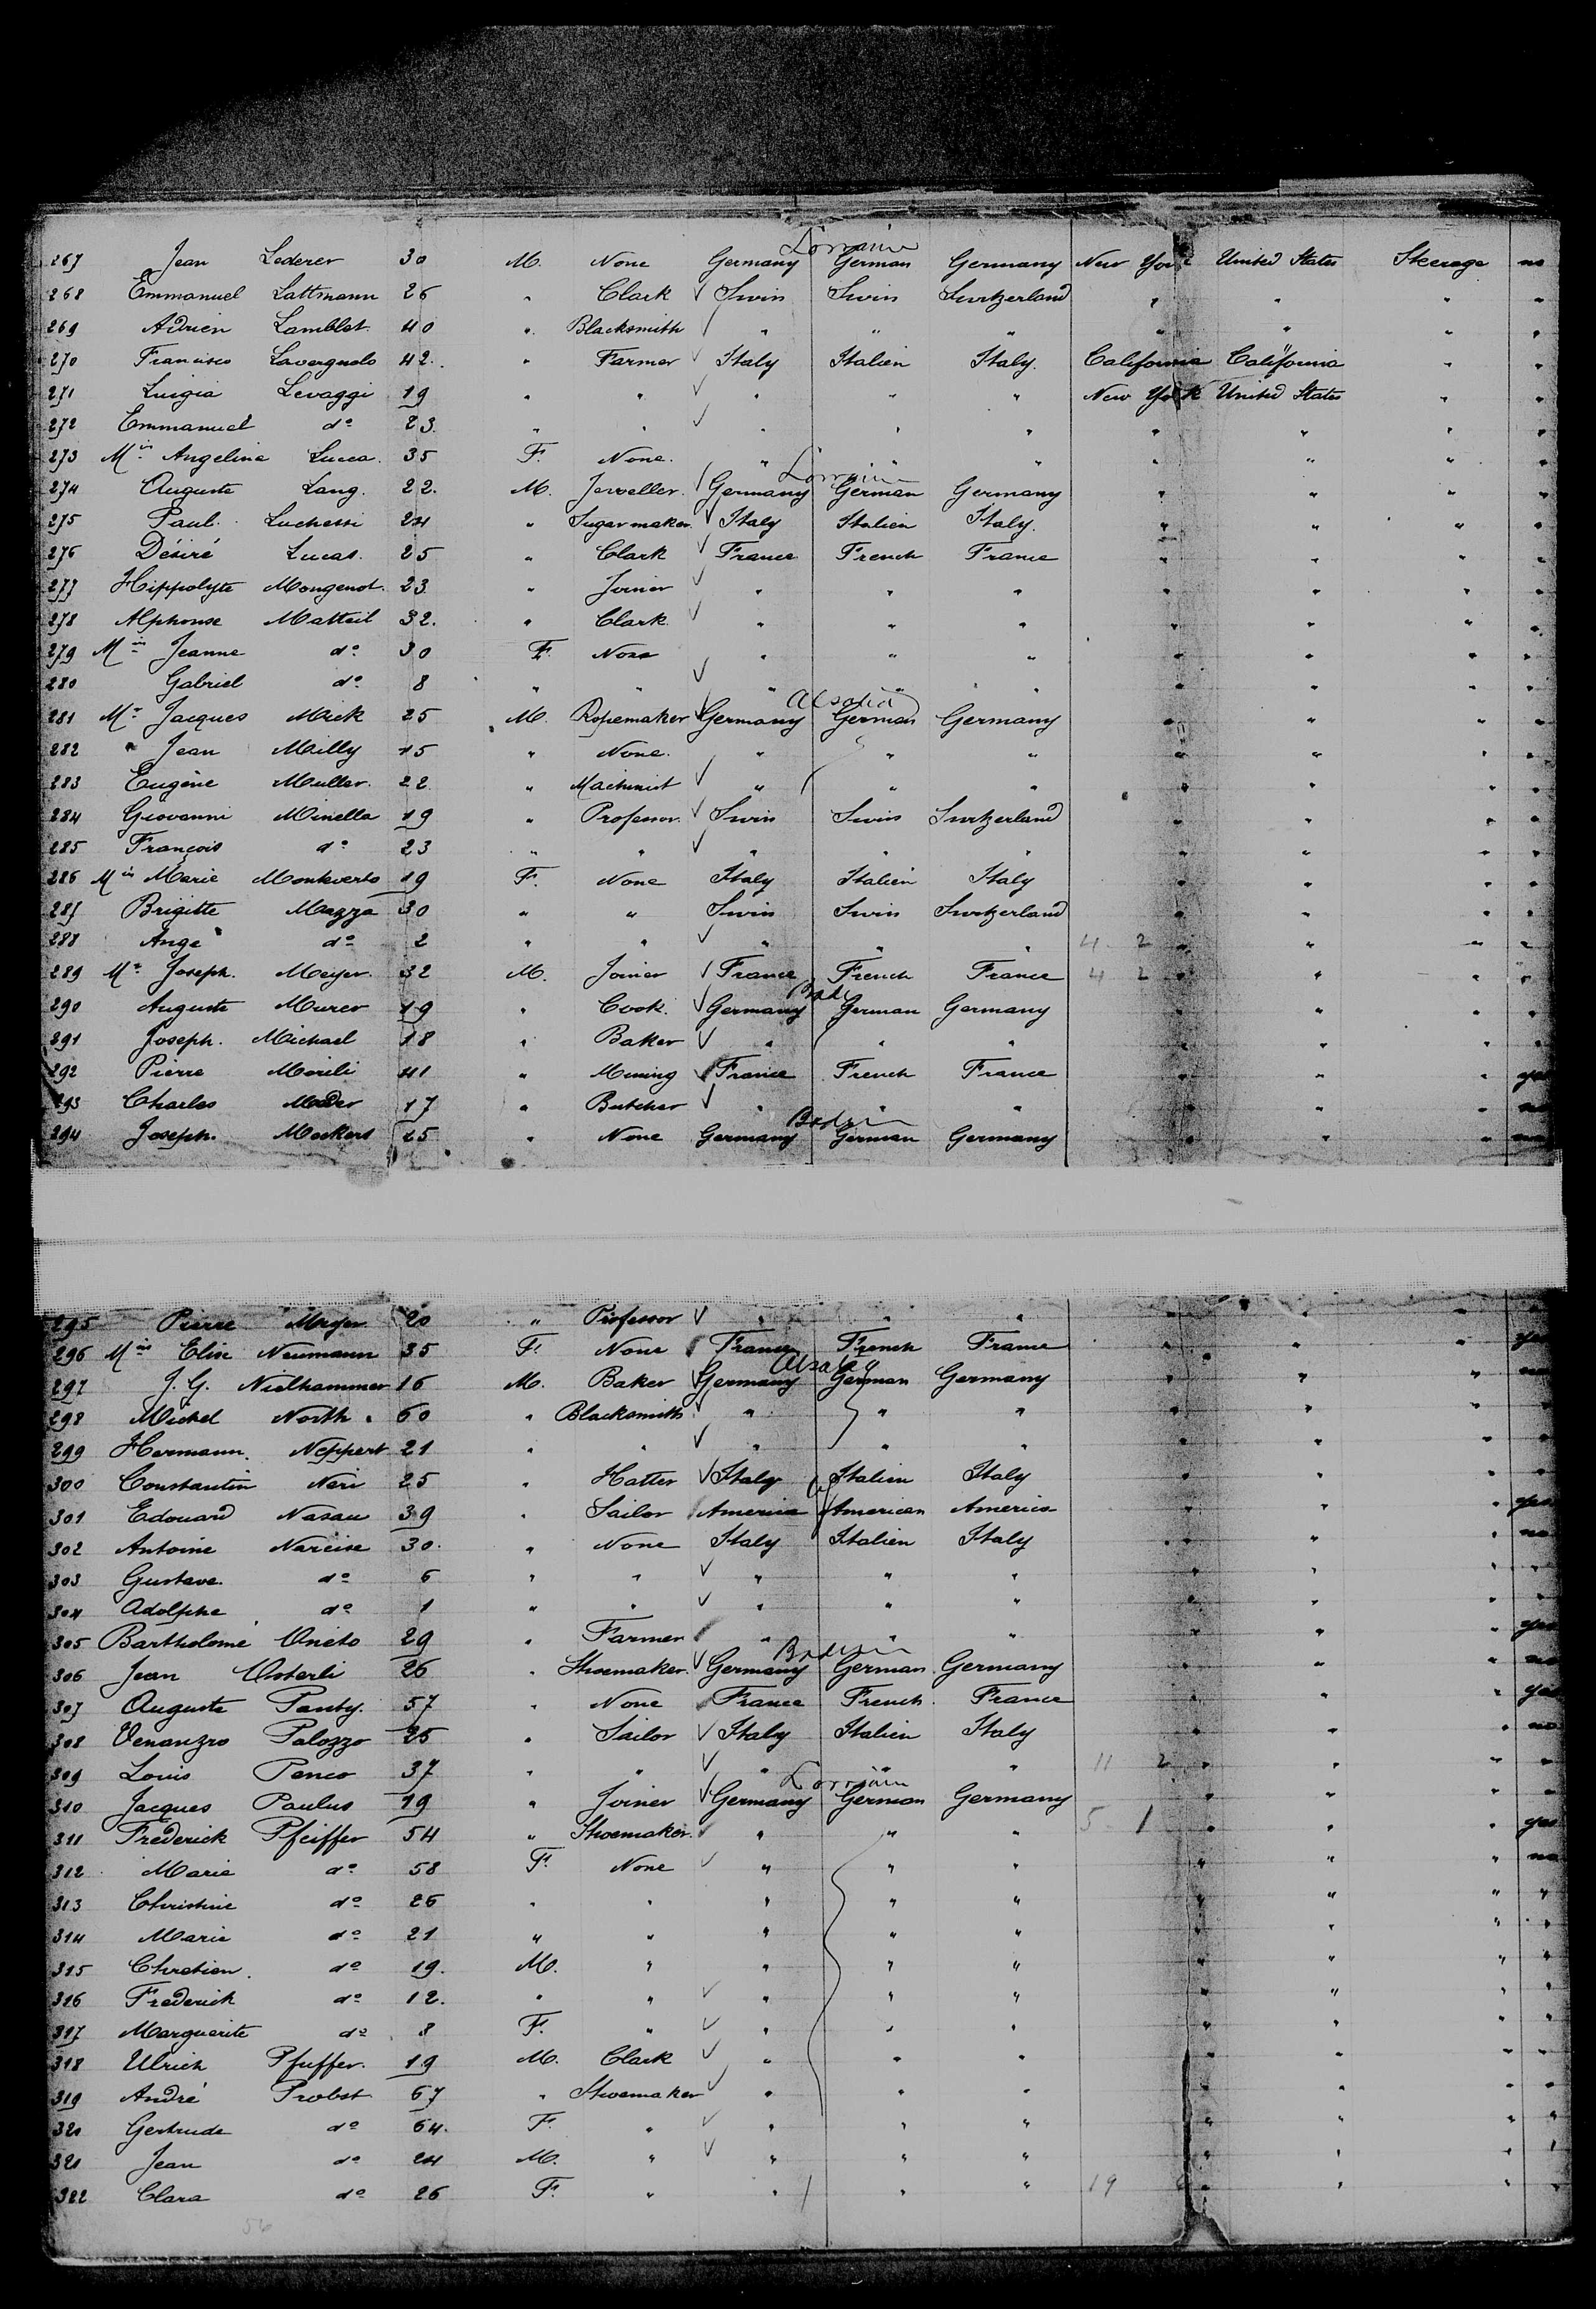 Lorraine
267 Jean Lederer 30 M. None Germany German Germany New York United States Steerage no
268 Emmanuel Lattmann 26 " Clark √ Swiss Swiss Switzerland " " " "
269 Adrien Lamblet 40 " Blacksmith √ " " " " " " "
270 Francisco Lavergnolo 42. " Farmer √ Italy Italien Italy. California California " "
271 Luigia Levaggi 19 " " √ " " " New York United States " "
272 Emmanuel do 23. " " √ " " " " " " "
273 Min Angelina Lucca. 35 F. None. " " " " " " "
Lorraine
274 Auguste Lang. 22. M. Jeweller. √ Germany German Germany " " " "
275 Paul. Luchessi 24 " Sugar maker. √ Italy Italien Italy. " " " "
276 Désiré Lucas. 25 " Clark √ France French France " " " "
277 Hippolyte Mongenot. 23 " Joiner √ " " " " " " "
278 Alphonse Matteil 32. " Clark √ " " " " " " "
279 Min Jeanne do 30 F. None " " " " " " "
280 Gabriel do 8 " " √ " " " " " " "
Alsatia
281 Mr Jacques Mick 25 M. Ropemaker √ Germany German Germany " " " "
282 " Jean Milly 15 " None. " " " " " " "
283 Eugène Muller. 22 " Machinist √ " " " " " " "
284 Giovanni Minella 19 " Professor. √ Swiss Swiss Switzerland " " " "
285 François do 23 " " √ " " " " " " "
286 Min Marie Monteverto 19 F. None Italy Italien Italy " " " "
287 Brigitte Mazza 30 " " Swiss Swiss Switzerland " " " "
288 Ange do 2 " " √ " " " 4 2 " " " "
289 Mr Joseph. Meyer. 32 M. Joiner √ France French France 4 2 " " " "
Bade
290 Auguste Murer 19 " Cook. √ Germany German Germany " " " "
291 Joseph. Michael 18 " Baker √ " " " " " " "
292 Pierre Mirili 41 " Mining √ France French France " " " yes
293 Charles Mader 17 " Butcher √ " " " " " " no
Baden
294 Joseph. Mockers 25 " None Germany German Germany " " " no
295 Pierre Mayer 20 " Professor √ " " " " " " no
296 Min Elise Neumann 35 F. None France French France " " " yes
Alsatia
297 J. G. Nielhammer 16 M. Baker √ Germany German Germany " " " no
298 Michel North. 60 " Blacksmith √ " " " " " " "
299 Hermann. Neppert 21 " " √ " " " " " " "
300 Constantin Neri 25 " Hatter √ Italy Italien Italy " " " "
301 Edouard Nasau 39 " Sailor America American America " " " yes
302 Antoine Narcise 30. " None Italy Italien Italy " " " no
303 Gustave. do 6 " " √ " " " " " " "
304 Adolphe do 1 " " √ " " " " " " "
305 Bartholomé Oneto 29 " Farmer " " " " " " yes
Baden
306 Jean Osterli 26 " Shoemaker. √ Germany German. Germany " " " no
307 Auguste Panty. 57 " None France French. France " " " yes
308 Venanzro Palozzo 25 " Sailor √ Italy Italien Italy " " " no
309 Louis Penco 37 " " √ " " " 11 2 " " " "
Lorrain
310 Jacques Paulus 19 " Joiner √ Germany German Germany " " " "
311 Frederick Pfeiffer 54 " Shoemaker. √ " " " 5 1 " " " yes
312 Marie do 58 F. None √ " " " " " " no
313 Christine do 26 " " " " " " " " "
314 Marie do 21 " " " " " " " " "
315 Chretien. do 19. M. " " " " " " " "
316 Frederick do 12. " " √ " " " " " " "
317 Marguerite do 8 F. " √ " " " " " " "
318 Ulrich Pfuffer. 19 M. Clark √ " " " " " " "
319 André Probst 67 " Shoemaker √ " " " " " " "
320 Gertrude do 64. F. " √ " " " " " " "
321 Jean do 24 M. " √ " " " " " " "
322 Clara do 26 F. " " " " 19 " " " "